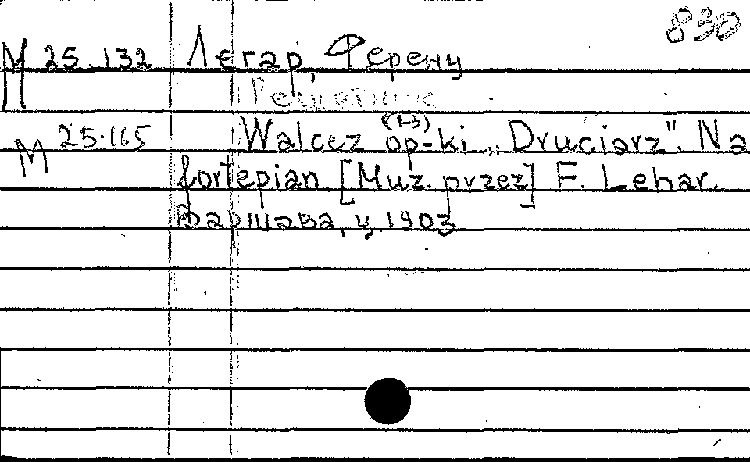 830
М 25.132 Легар, Ференц
М 25.165 Walcez (1-3) op-ki „Druciarz". Na
fortepian [Muz. przez] F. Lehar.
Варшава, ц. 1903